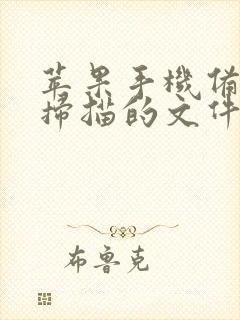 苹果手機備
掃描的文件
布魯克